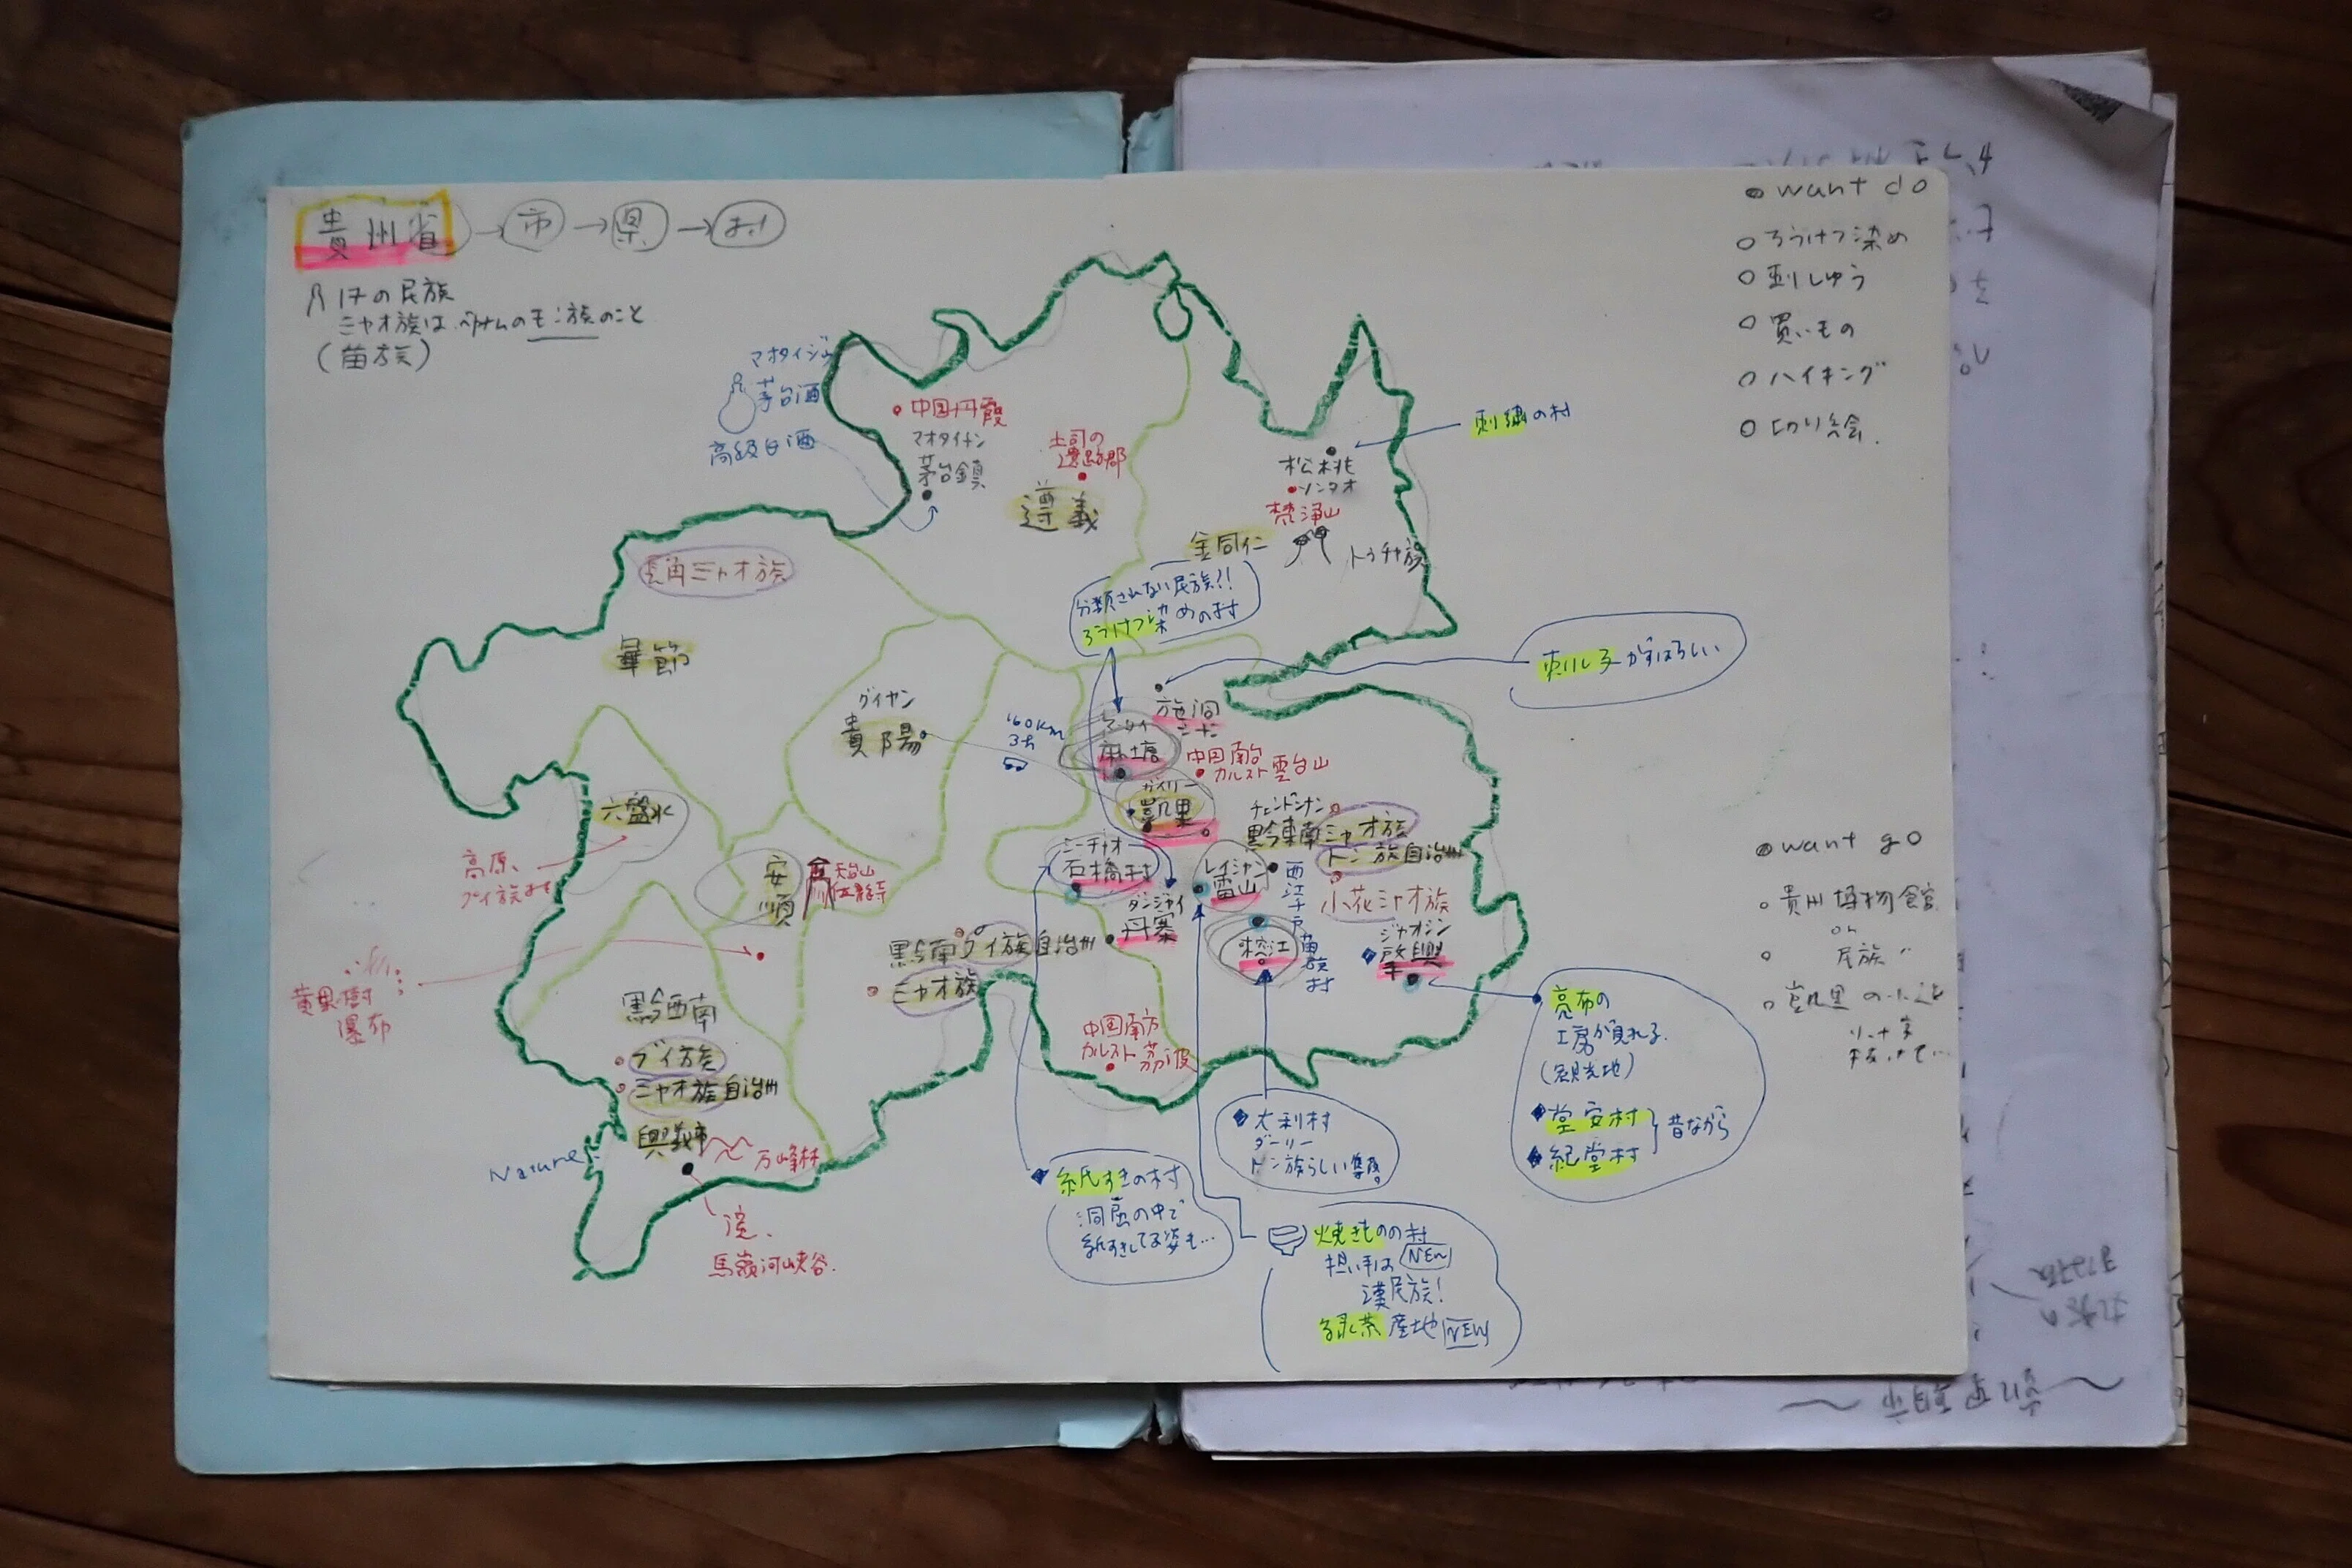 貴州省→市→県→村
17の民族
ミャオ族は ベトナムのモン族のこと
(苗族)
マオタイジュ
茅台酒
高級白酒
中国丹霞
マオタイチン
茅台鎮
土司の
遺跡郡
遵義
刺繍の村
松桃
ソンタオ
梵浄山
銅仁
トゥチャ族
長角ミャオ族
畢節
分類されない民族?!
ろうけつ染めの村
刺し子がすばらしい
グイヤン
貴陽
160km
施洞
シドン
麻塘
中国南方
カルスト 雲台山
ガイリー
凱里
六盤水
高原、
プイ族村
安順
天台山
伍龍寺
黔東南ミャオ族
トン族自治州
小花ミャオ族
石橋村
ダンジャイ
丹寨
レイシャン
雷山
西江千戸苗族村
榕江
ジャオシン
肇興
黔南プイ族自治州
ミャオ族
黄果樹
瀑布
黔西南
プイ族
ミャオ族自治州
興義市
万峰林
Nature
馬嶺河峡谷.
中国南方
カルスト 茘波
紙すきの村
洞窟の中で
紙すきしてる姿も…
大利村
ダーリー
トン族らしい集落。
焼きものの村
担い手は NEW
漢民族!
緑茶 産地 NEW
亮布の
工房が見れる.
(観光地)
堂安村
紀堂村
昔ながら
want do
ろうけつ染め
刺しゅう
買いもの
ハイキング
切り絵.
want go
貴州博物館
or
民族 〃
凱里の